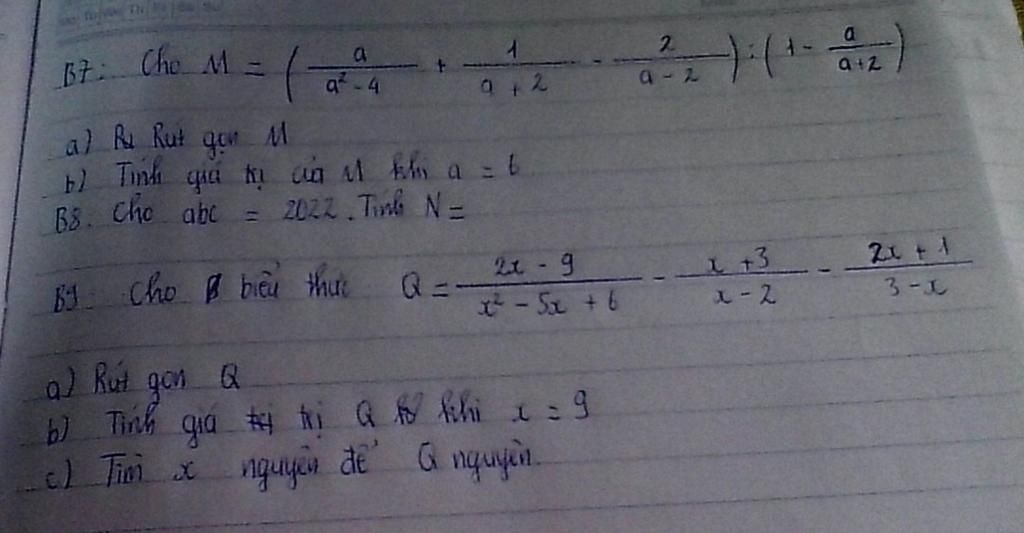 B7: Cho M = ( a/(a² - 4) + 1/(a + 2) - 2/(a - 2) ) : ( 1 - a/(a+2) )
a) Rút gọn M
b) Tính giá trị của M khi a = 6
B8. Cho abc = 2022. Tính N =
B9. Cho biểu thức Q = (2x - 9)/(x² - 5x + 6) - (x + 3)/(x - 2) - (2x + 1)/(3 - x)
a) Rút gọn Q
b) Tính giá trị Q khi x = 9
c) Tìm x nguyên để Q nguyên.